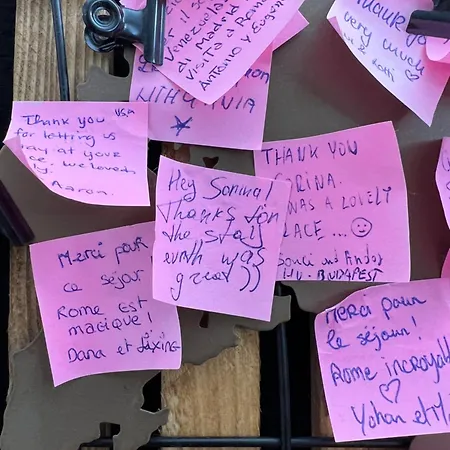 Venezuela
Madrid
visita a Roma
Antonio y Eugen
LITHUANIA
Thank you
very much
Thank you USA
for letting us
stay at your
We loved
Aaron.
Hey
Thanks for
the stay
evrth was
great ))
THANK YOU
WAS A LOVELY
LACE ... ☺
und Andor
HU - BUDAPEST
Merci pour
ce séjour
ROME EST
MAGIQUE!
Dana et
Merci pour
le séjour!
Rome incroyabl
♡
Yohan et